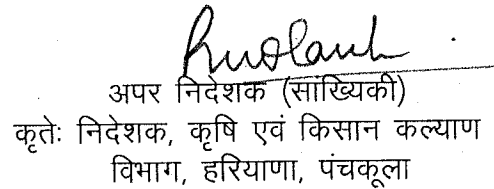 अपर निदेशक (सांख्यिकी)
कृतेः निदेशक, कृषि एवं किसान कल्याण
विभाग, हरियाणा, पंचकूला